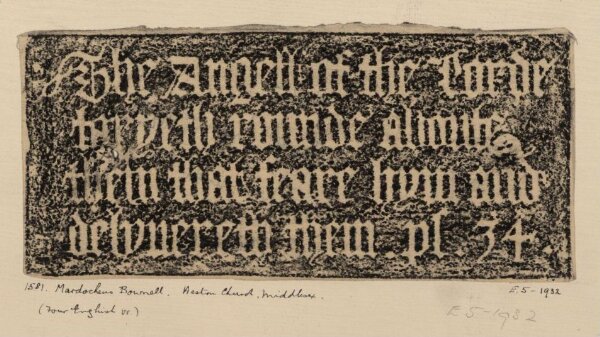 The Angell of the Lorde
taryeth rounde aboute
them that feare hym and
delyuereth them. pl. 34.
1581. Mardocheus Bownell. Heston Church, Middlesex. E.5-1932
(Four English vv) E 5-1932